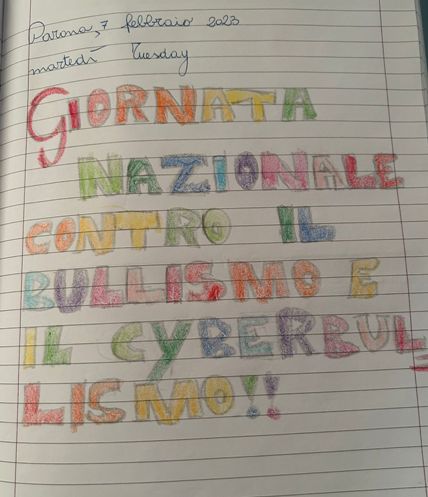 Parona, 7 febbraio 2023
martedì Tuesday
GIORNATA
NAZIONALE
CONTRO IL
BULLISMO E
IL CYBERBUL
LISMO!!